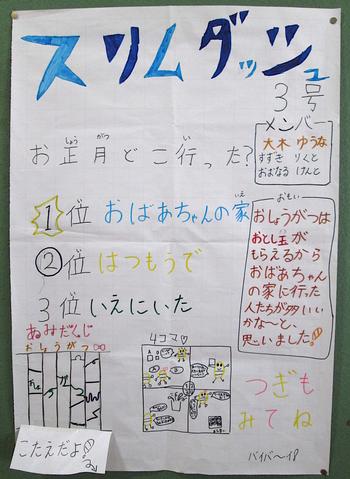 スリムダッシュ
3号
メンバー
大木 ゆうな
すずき りくと
おおなる けんと
お正月どこ行った?
しょう がつ い
1位 おばあちゃんの家
いえ
2位 はつもうで
3位 いえにいた
おもい
おしょうがつは
おとし玉が
もらえるから
おばあちゃん
の家に行った
人たちが多いい
かな〜と、
思いました!
あみだくじ
おしょうがつ
4コマ
つぎも
みてね
こたえだよ!
バイバ〜イ